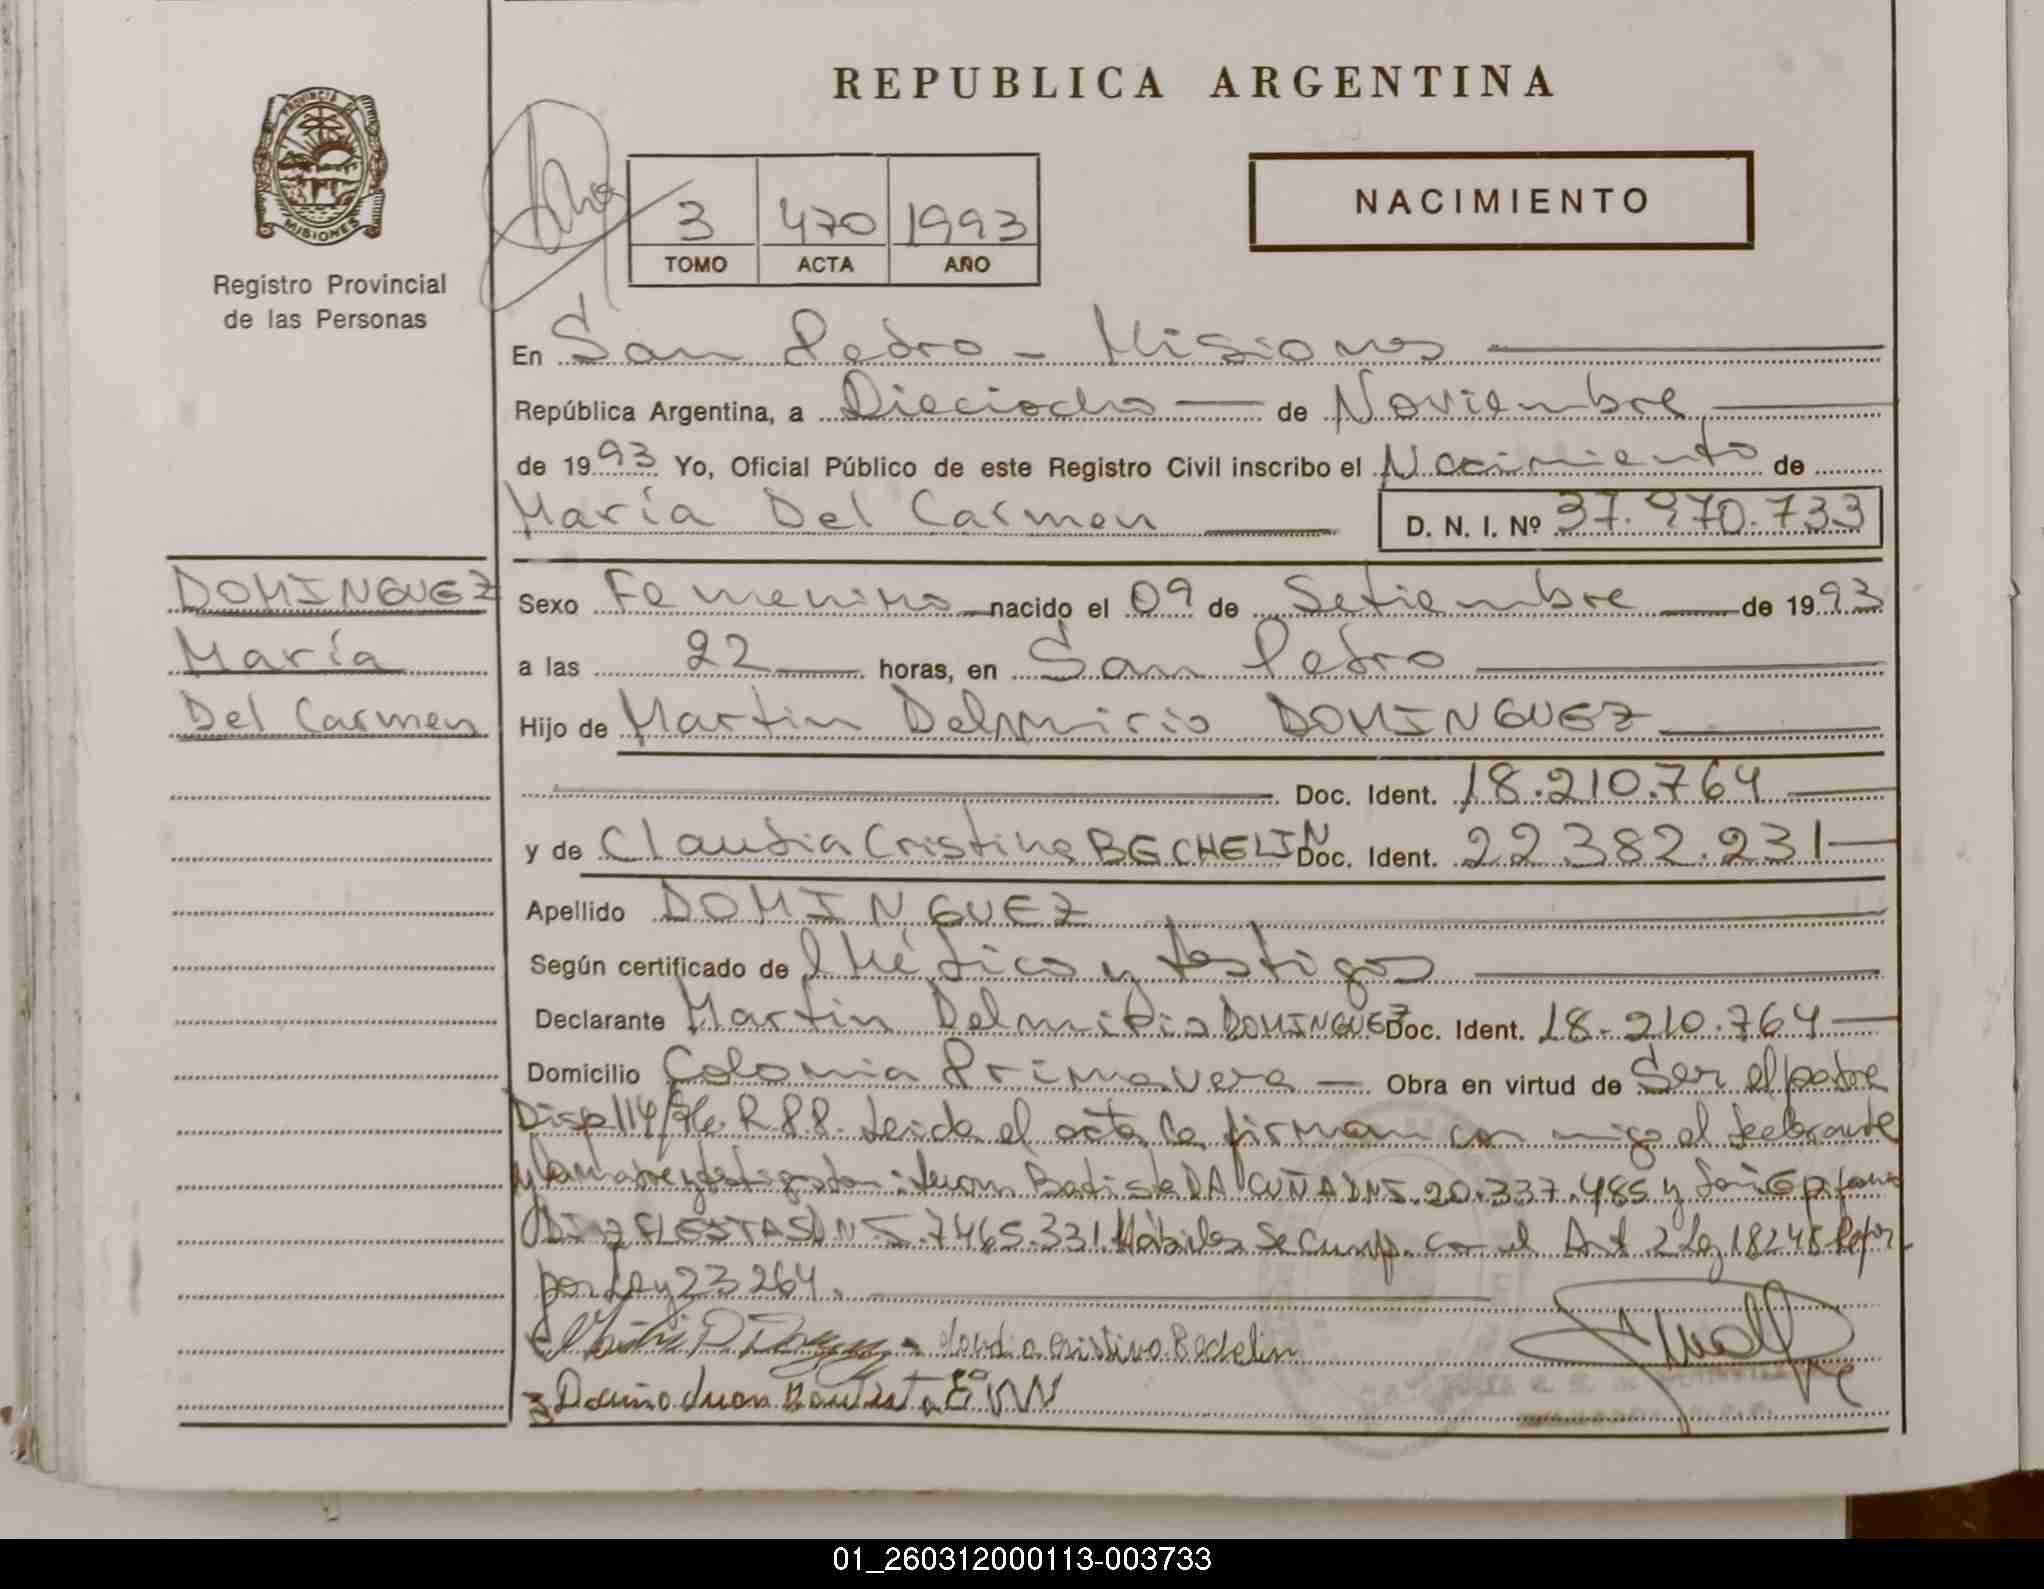 REPUBLICA ARGENTINA
PROVINCIA DE
MISIONES
Registro Provincial
de las Personas
3 470 1993
TOMO ACTA AÑO
NACIMIENTO
En San Pedro - Misiones
República Argentina, a Dieciocho de Noviembre
de 1993 Yo, Oficial Público de este Registro Civil inscribo el Nacimiento de
María Del Carmen D. N. I. Nº 37.970.733
DOMINGUEZ
María
Del Carmen
Sexo Femenino nacido el 09 de Setiembre de 1993
a las 22 horas, en San Pedro
Hijo de Martin Delmirio DOMINGUEZ
Doc. Ident. 18.210.764
y de Claudia Cristina BECHELIN Doc. Ident. 22.382.231
Apellido DOMINGUEZ
Según certificado de Médico y testigos
Declarante Martin Delmirio DOMINGUEZ Doc. Ident. 18.210.764
Domicilio Colonia Primavera Obra en virtud de Ser el padre
Disp 114/ R.P.P. Leida el acta la firman con migo el declarante
y la madre y testigos Juan Batista DA CUÑA DNI. 20.337.485 y
DNI. 7465.331. Hábiles Se Cump. con el Art 2 Ley 18248
por Ley 23264.
Claudia Cristina Bechelin
Juan Bautista
01_260312000113-003733